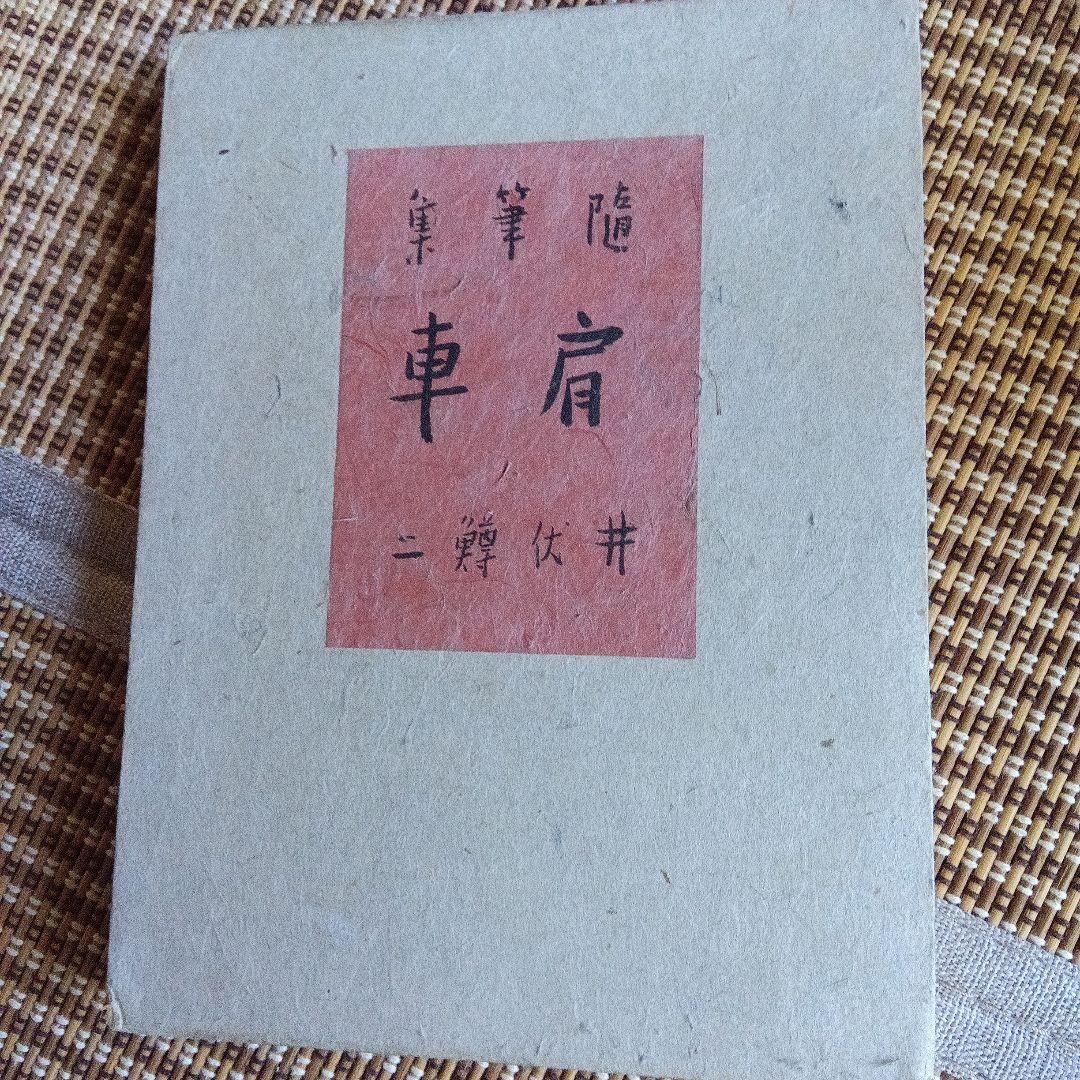 隨筆集
肩車
井伏鱒二